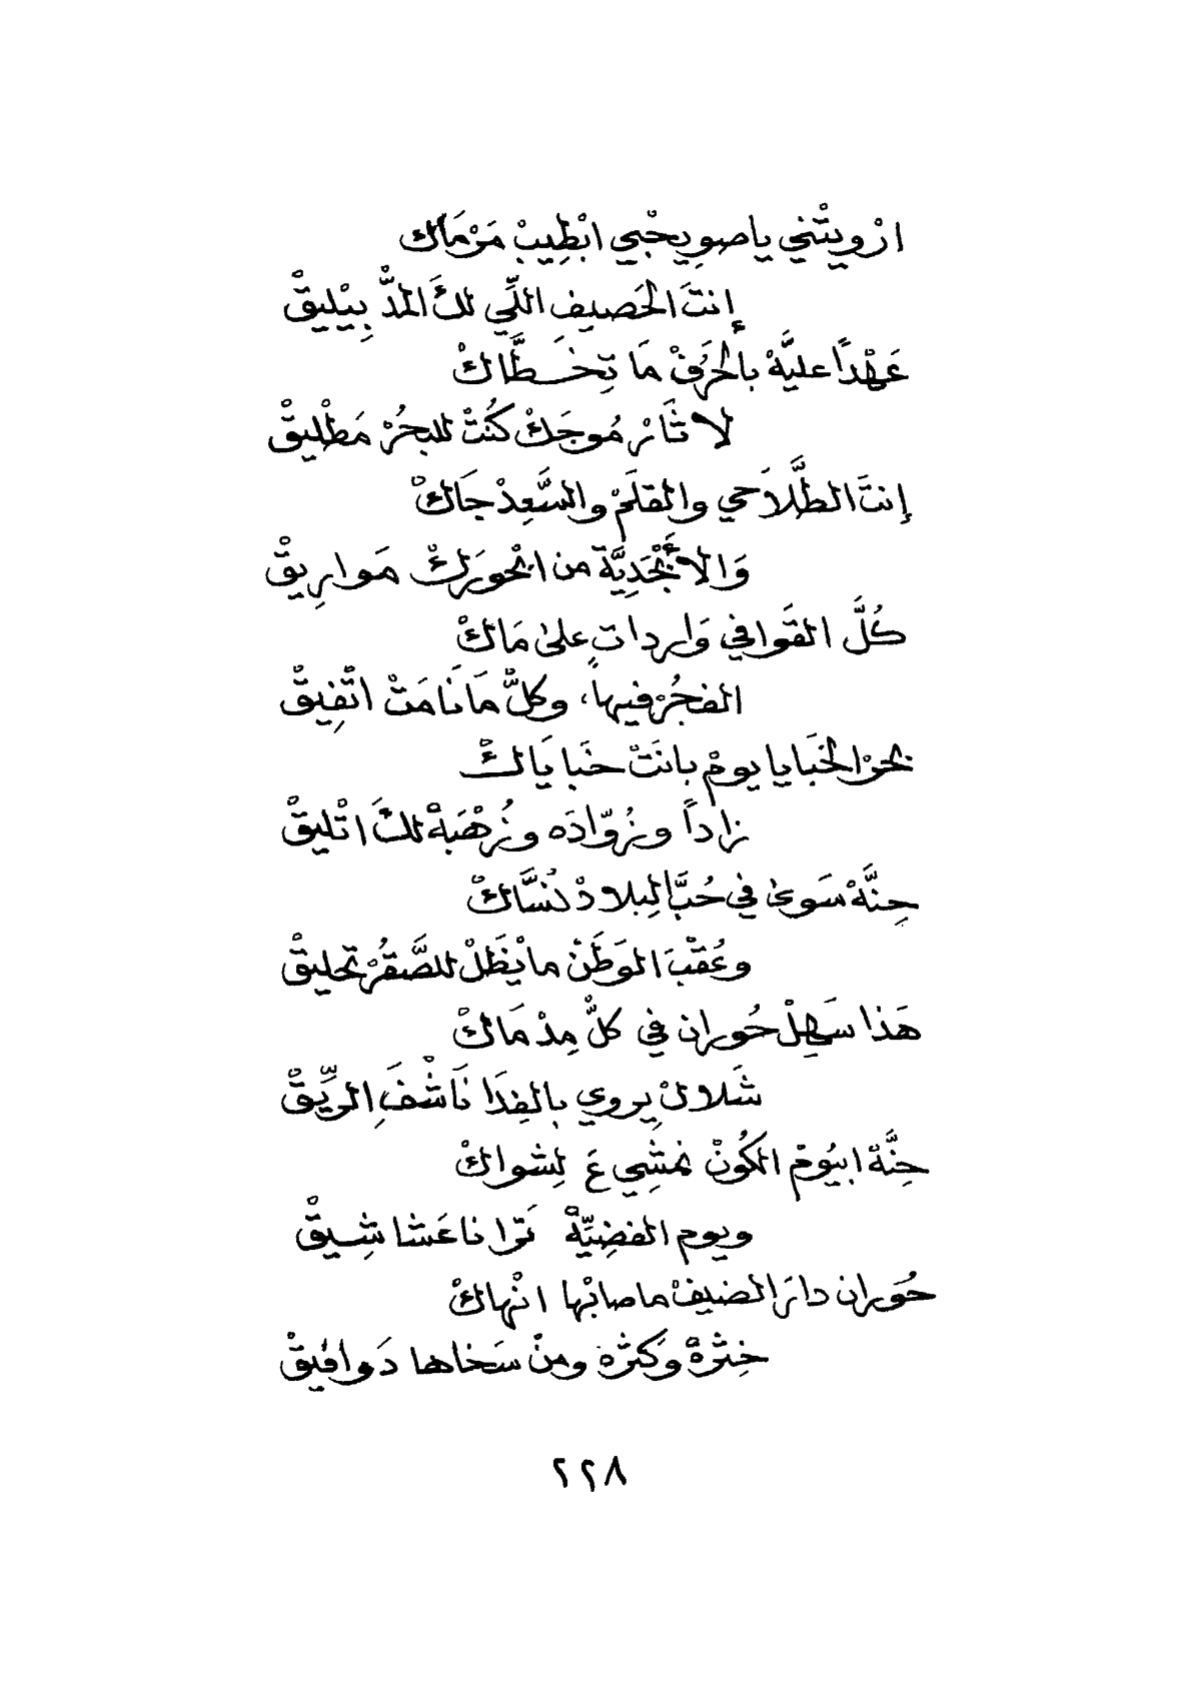 ارْويتْني ياصوِيحْبي ابْطِيبْ مَرْمَاك
إنتَ الحَصيفِ اللّي لكَ المدّْ بِيْليقْ
عَهْداً عليَّهْ بالحَرفْ مَا تِخَطَّاكْ
لا ثَارْ مُوجَكْ كُنتْ للبحُرْ مَطْليقْ
إنتَ الطَّلَاحي والقلَمْ والسَّعِدْ جَاكْ
وَالأَبْجَدِيَّة من ابْحورَكْ مَوارِيقْ
كُلَّ القَوافي وَارداتٍ علىٰ مَاكْ
الفجُرْ فيها، وكلّْ مَا نَامَتْ اتْفِيقْ
بحَرْ الخبَايا يومْ بانَتْ خبَايَاكْ
زاداً وزُوّادَه وزُهْبَةْ لكَ اتْليقْ
حِنَّهْ سَوىٰ في حُبَّ البِلادْ نُسَّاكْ
وعُقْبَ الوَطَنْ ما يْظَلْ للصَّقُرْ تحليقْ
هَذا سَهِلْ حُوران في كلّْ مِدْمَاكْ
شَلالْ يِروي بالفِدَا نَاشْفَ الرِّيقْ
حِنَّهْ ابيُومْ الكُونْ نمشِي عَ لِشواكْ
ويوم الفضِيِّهْ تَرا ناعَشا شِيقْ
حُوران دارَ الضيفْ ما صابْها انْهاكْ
خِثرهْ وَكثرهْ ومنْ سَخاها دَوافيقْ
٢٢٨